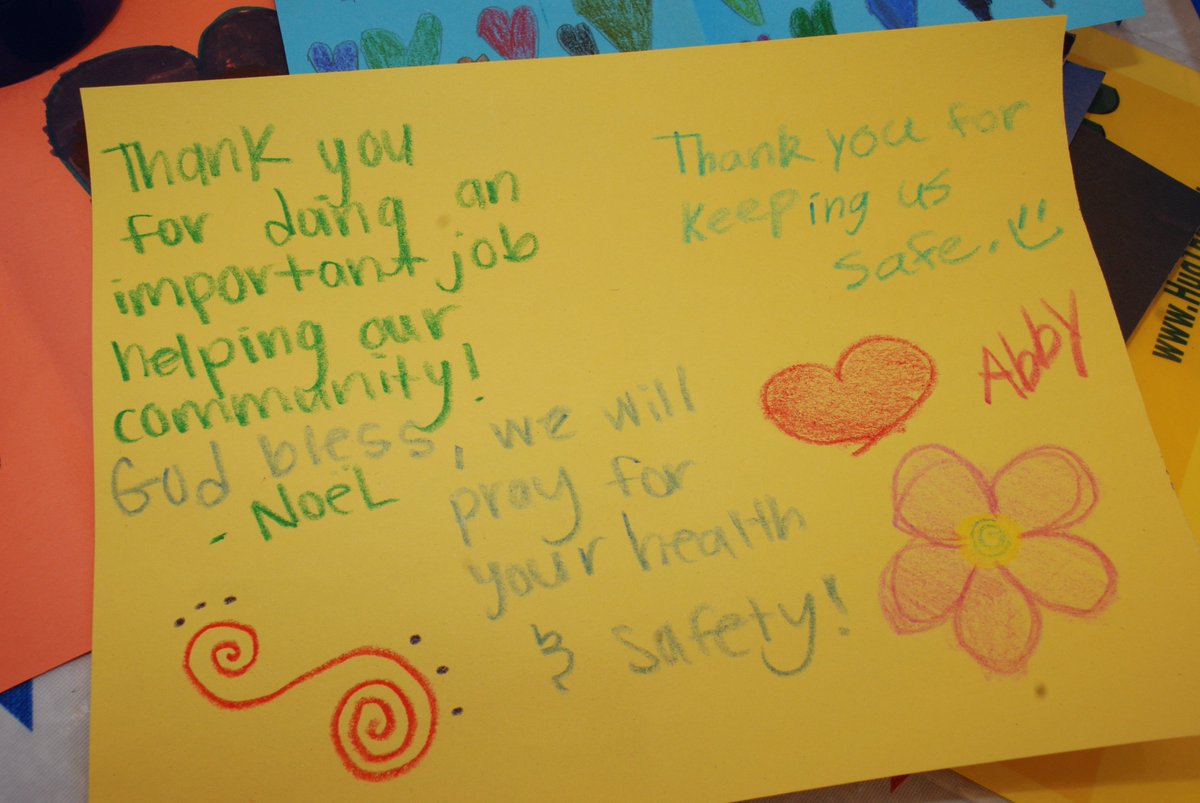 Thank you
for doing an
important job
helping our
community!
- NOEL
Thank you for
keeping us
safe. :)
Abby
God bless, we will
pray for
your health
& safety!
www.